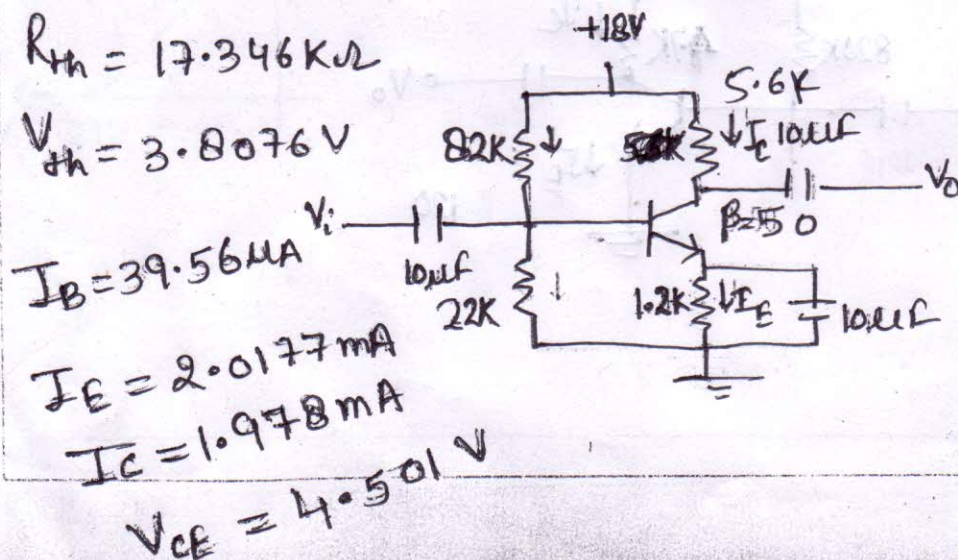 Rth = 17.346 KΩ
Vth = 3.8076 V
IB = 39.56 μA
IE = 2.0177 mA
IC = 1.978 mA
VCE = 4.501 V
+18V
82K
5.6K
Ic
10μF
Vo
Vi
10μF
β=50
22K
1.2K
IE
10μF